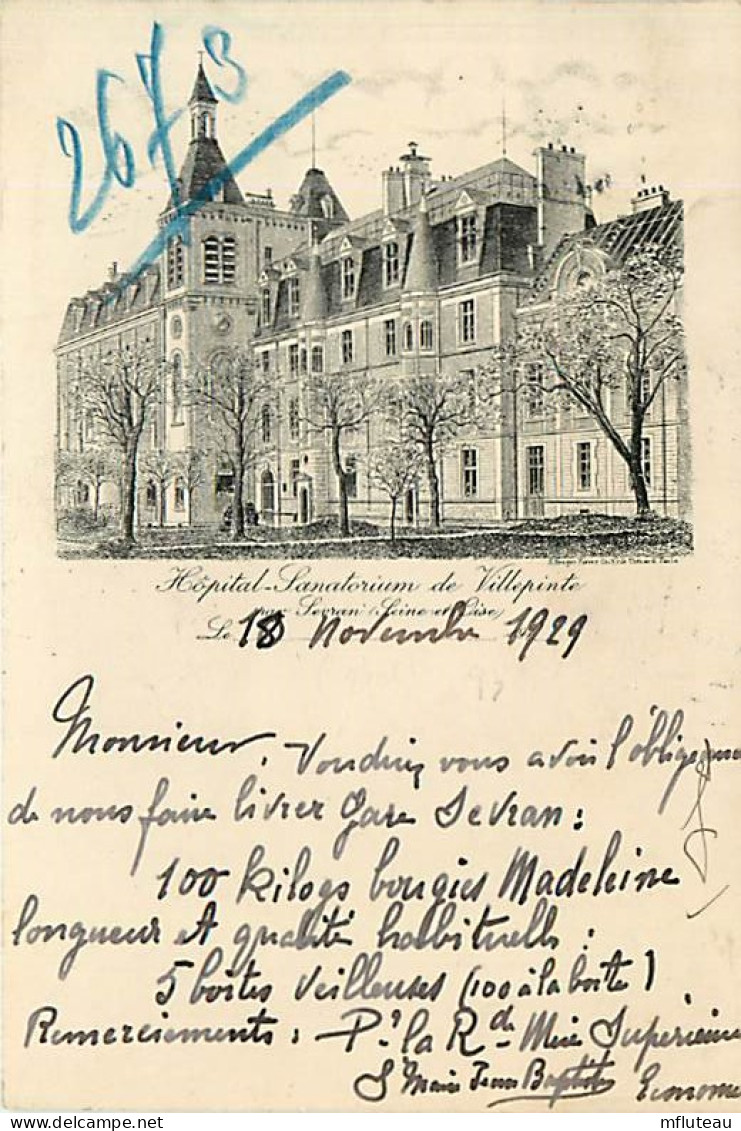 2673
Hôpital-Sanatorium de Villepinte
par Sevran (Seine-et-Oise)
Le 18 Novembre 1929
Monsieur, Voudriez vous avoir l'obligeance
de nous faire livrer Gare Sevran :
100 kilogs bougies Madeleine
longueur et qualité habituelle :
5 boîtes Veilleuses (100 à la boîte)
Remerciements : Pr. la Rde Mère Supérieure
Sr Marie Jean Baptiste Econome
mfluteau
DELCAMPE.NET